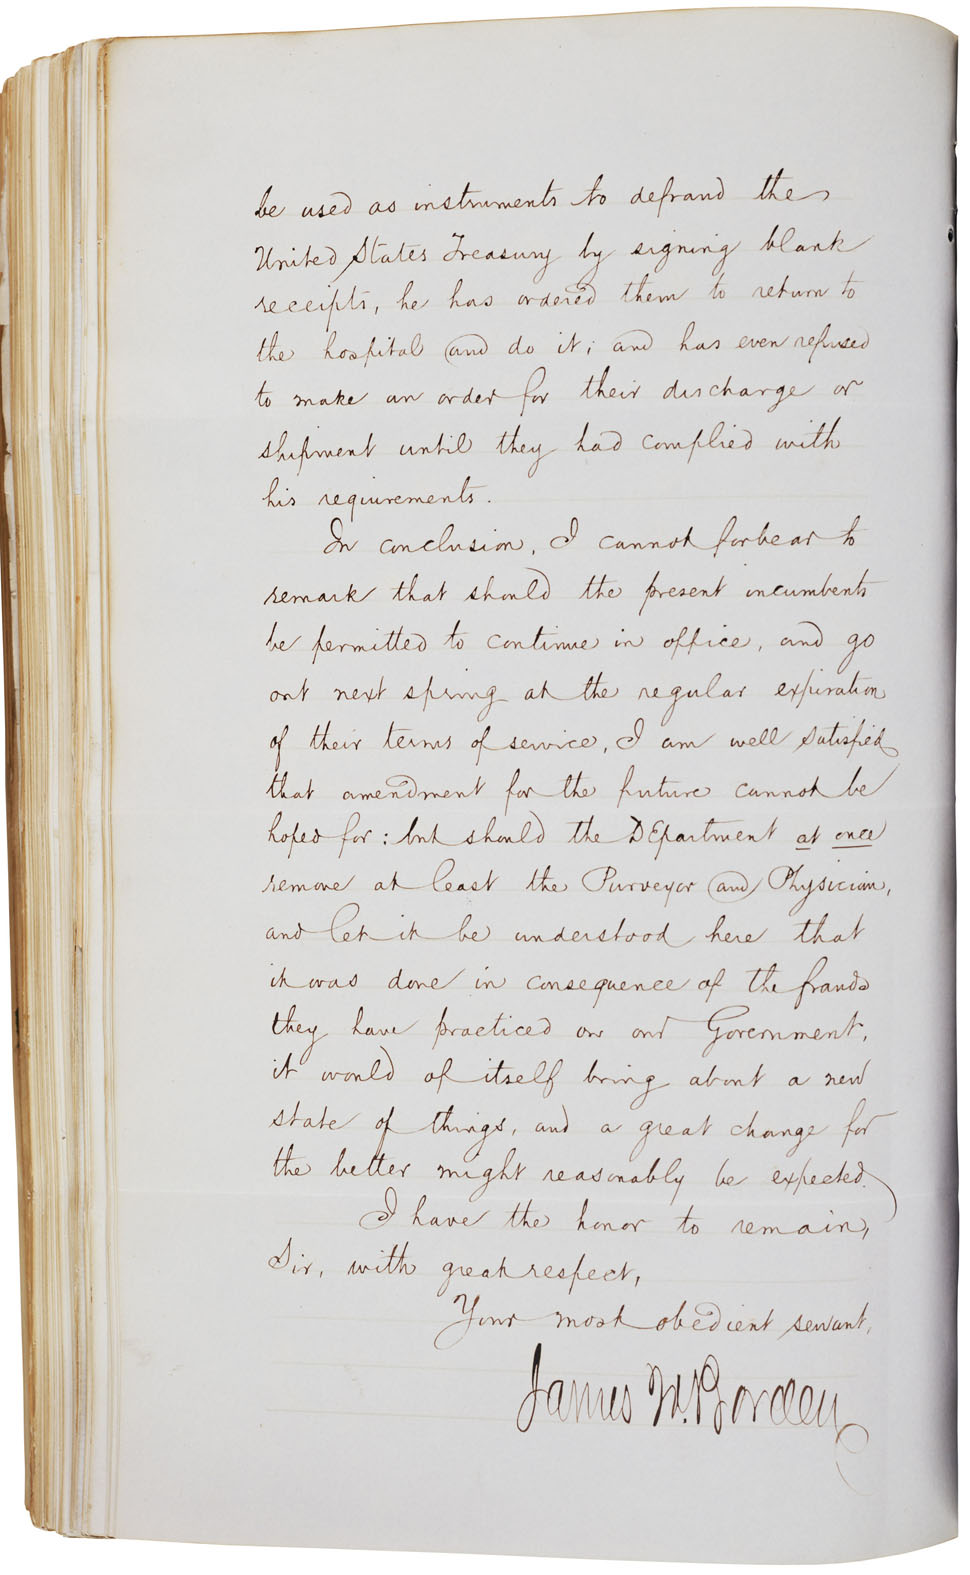 be used as instruments to defraud the
United States Treasury by signing blank
receipts, he has ordered them to return to
the hospital and do it; and has even refused
to make an order for their discharge or
shipment until they had complied with
his requirements.
In conclusion, I cannot forbear to
remark that should the present incumbents
be permitted to continue in office, and go
out next spring at the regular expiration
of their terms of service, I am well satisfied
that amendment for the future cannot be
hoped for: but should the DEpartment at once
remove at least the Purveyor and Physician,
and let it be understood here that
it was done in consequence of the frauds
they have practiced on our Government,
it would of itself bring about a new
state of things, and a great change for
the better might reasonably be expected.
I have the honor to remain,
Sir, with great respect,
Your most obedient servant,
James W. Borden